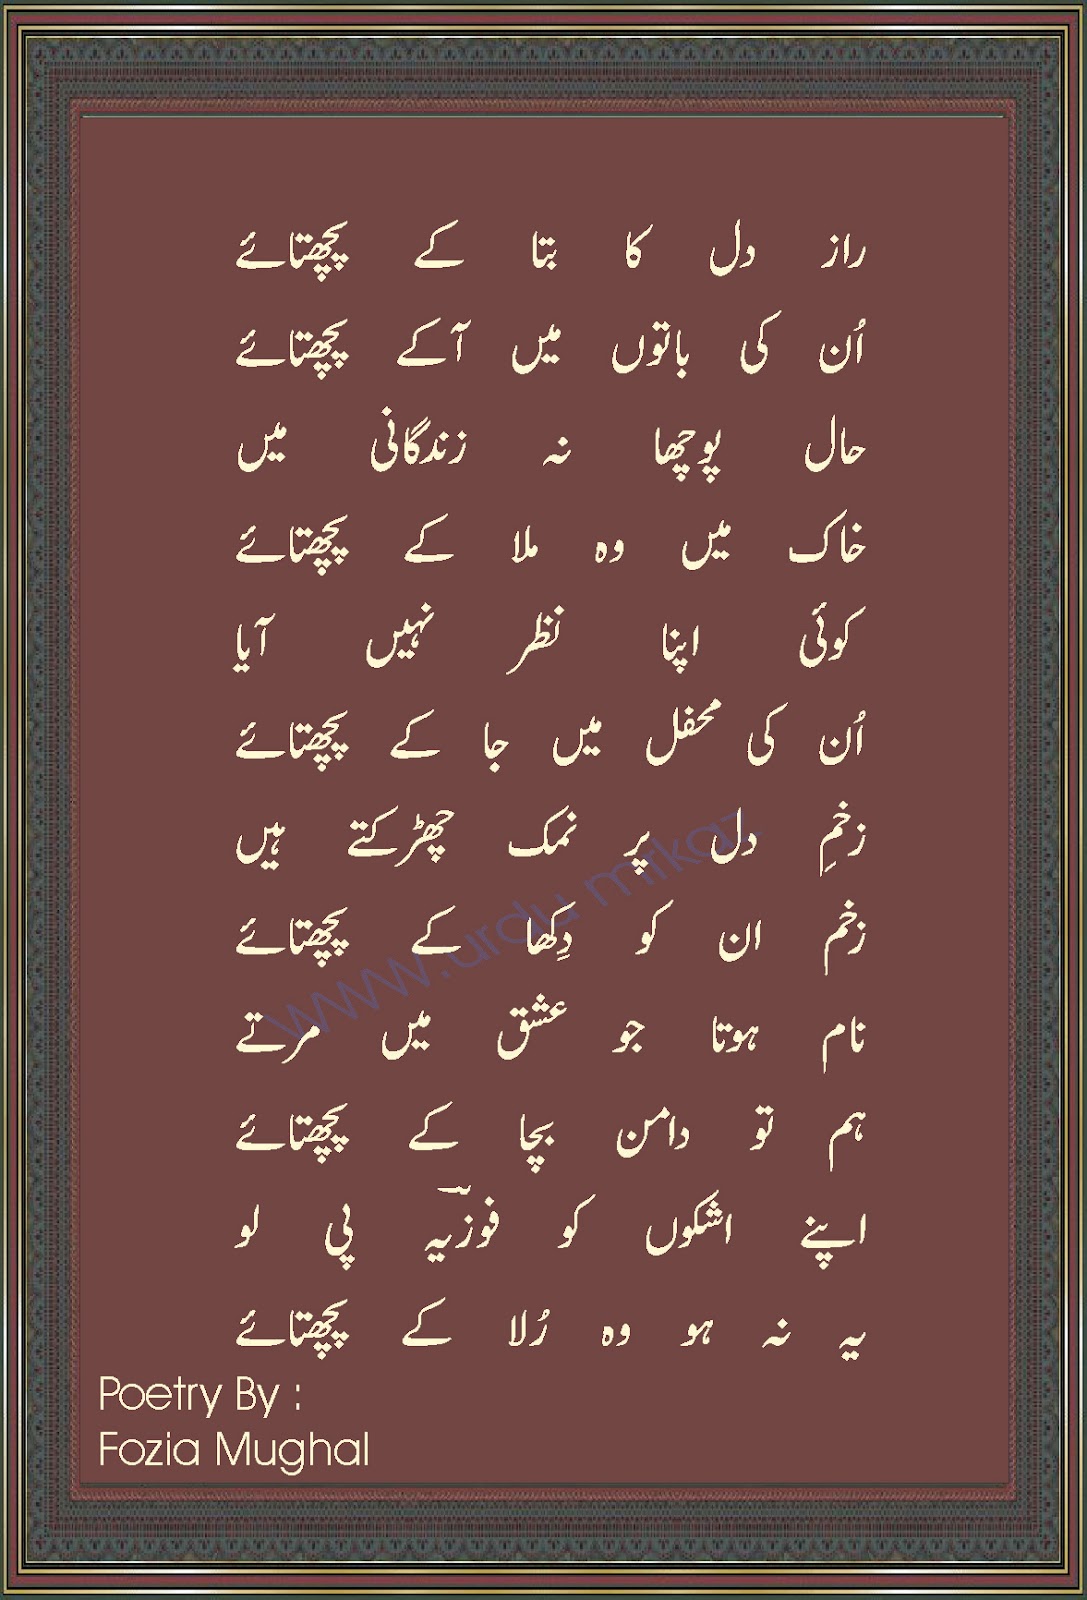 راز دل کا بتا کے پچھتائے
اُن کی باتوں میں آکے پچھتائے
حال پوچھا نہ زندگانی میں
خاک میں وہ ملا کے پچھتائے
کوئی اپنا نظر نہیں آیا
اُن کی محفل میں جا کے پچھتائے
زخمِ دل پر نمک چھڑکتے ہیں
زخم ان کو دِکھا کے پچھتائے
www.urdu mrkaz
نام ہوتا جو عشق میں مرتے
ہم تو دامن بچا کے پچھتائے
اپنے اشکوں کو فوزیہؔ پی لو
یہ نہ ہو وہ رُلا کے پچھتائے
Poetry By :
Fozia Mughal